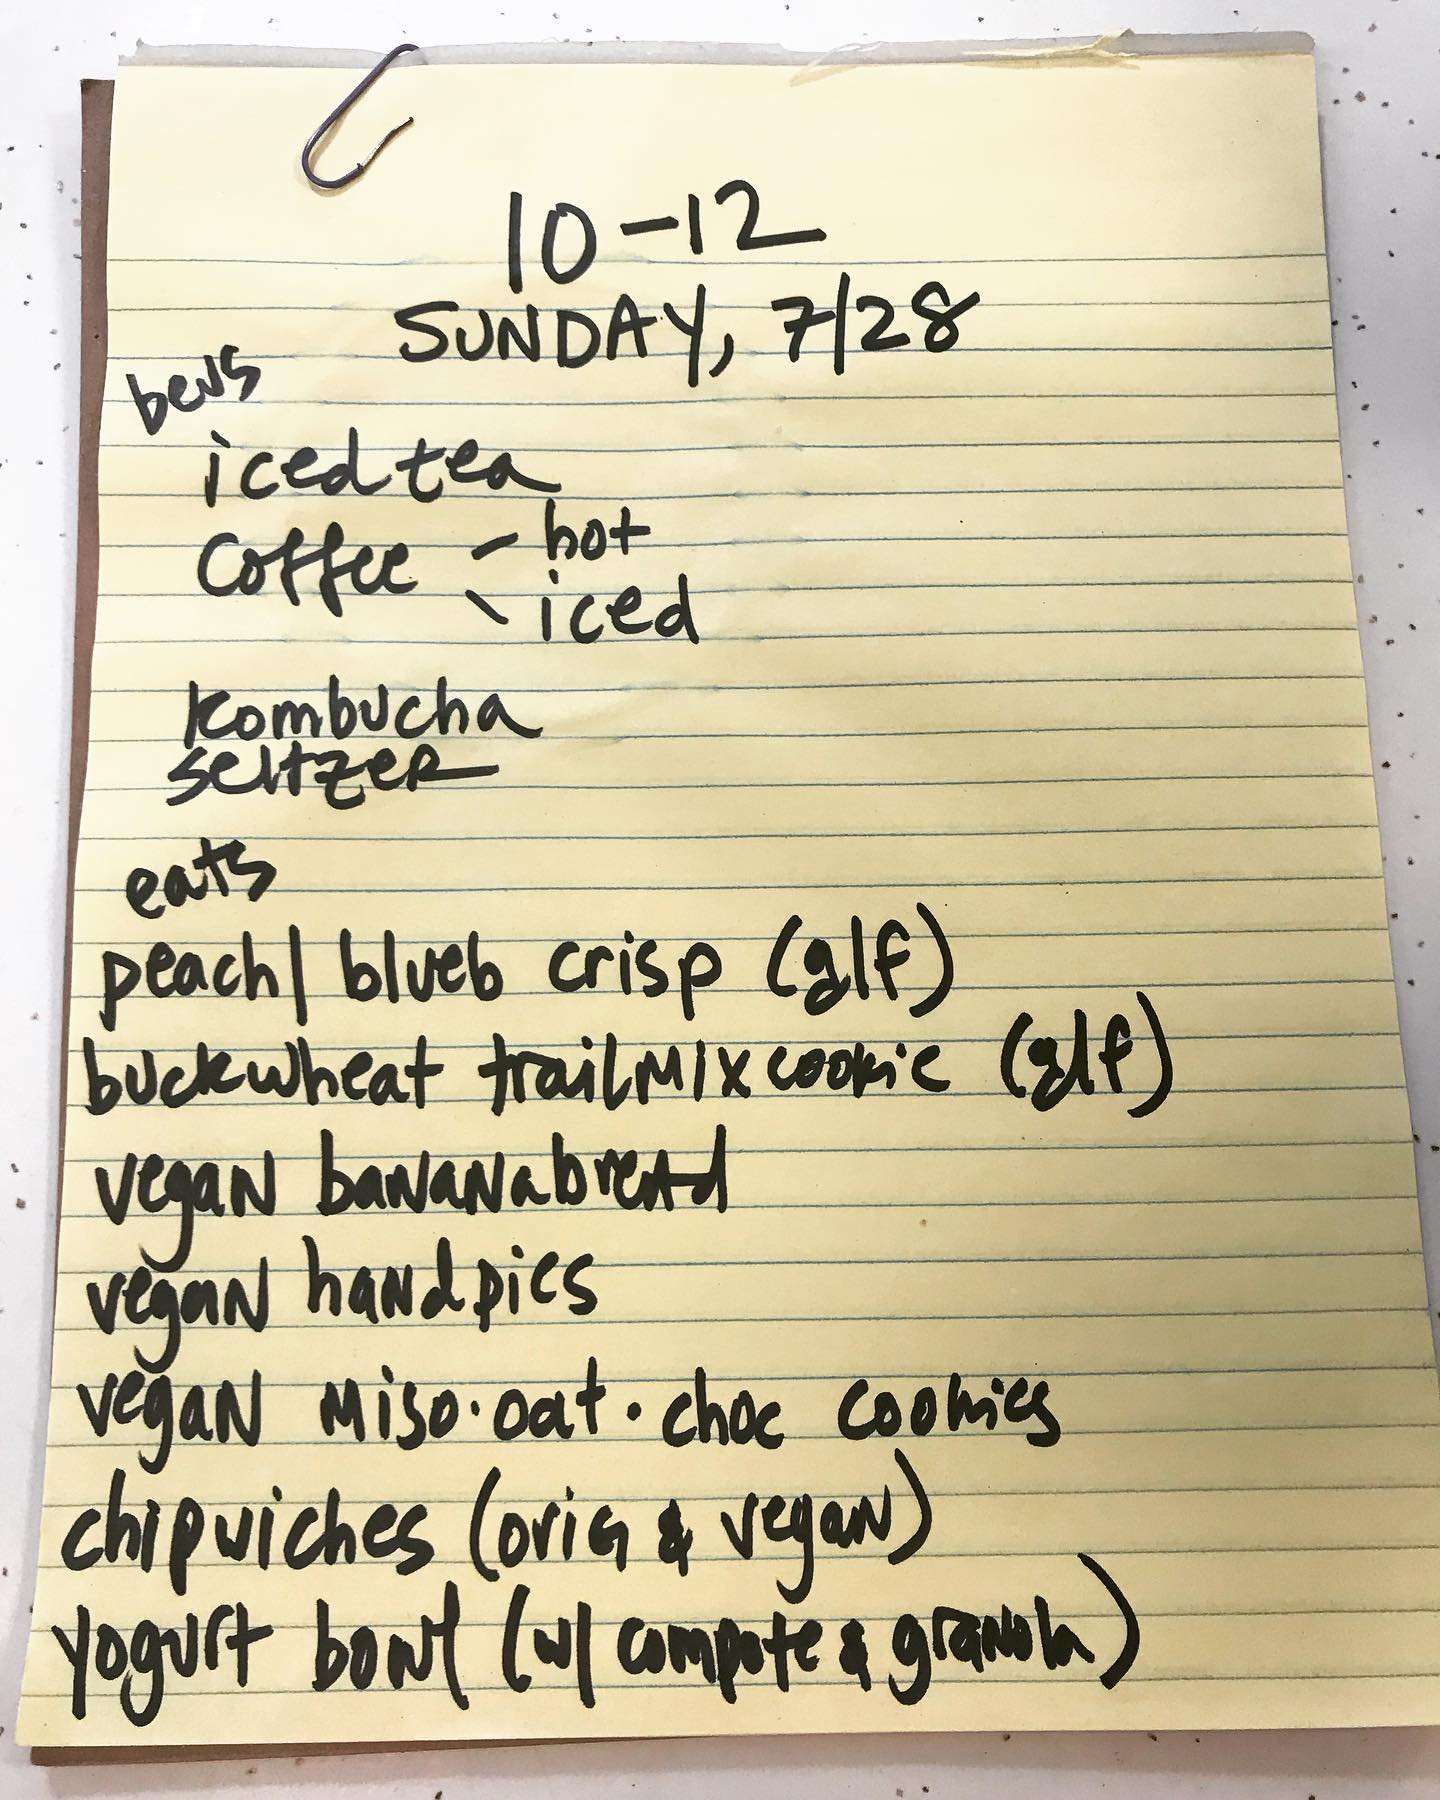 10-12
SUNDAY, 7/28
bevs
iced tea
coffee - hot
- iced
kombucha
seltzer
eats
peach/blueb crisp (g/f)
buckwheat trailmix cookie (g/f)
vegan bananabread
vegan handpies
vegan miso·oat·choc cookies
chipwiches (orig & vegan)
yogurt bowl (w/ compote & granola)